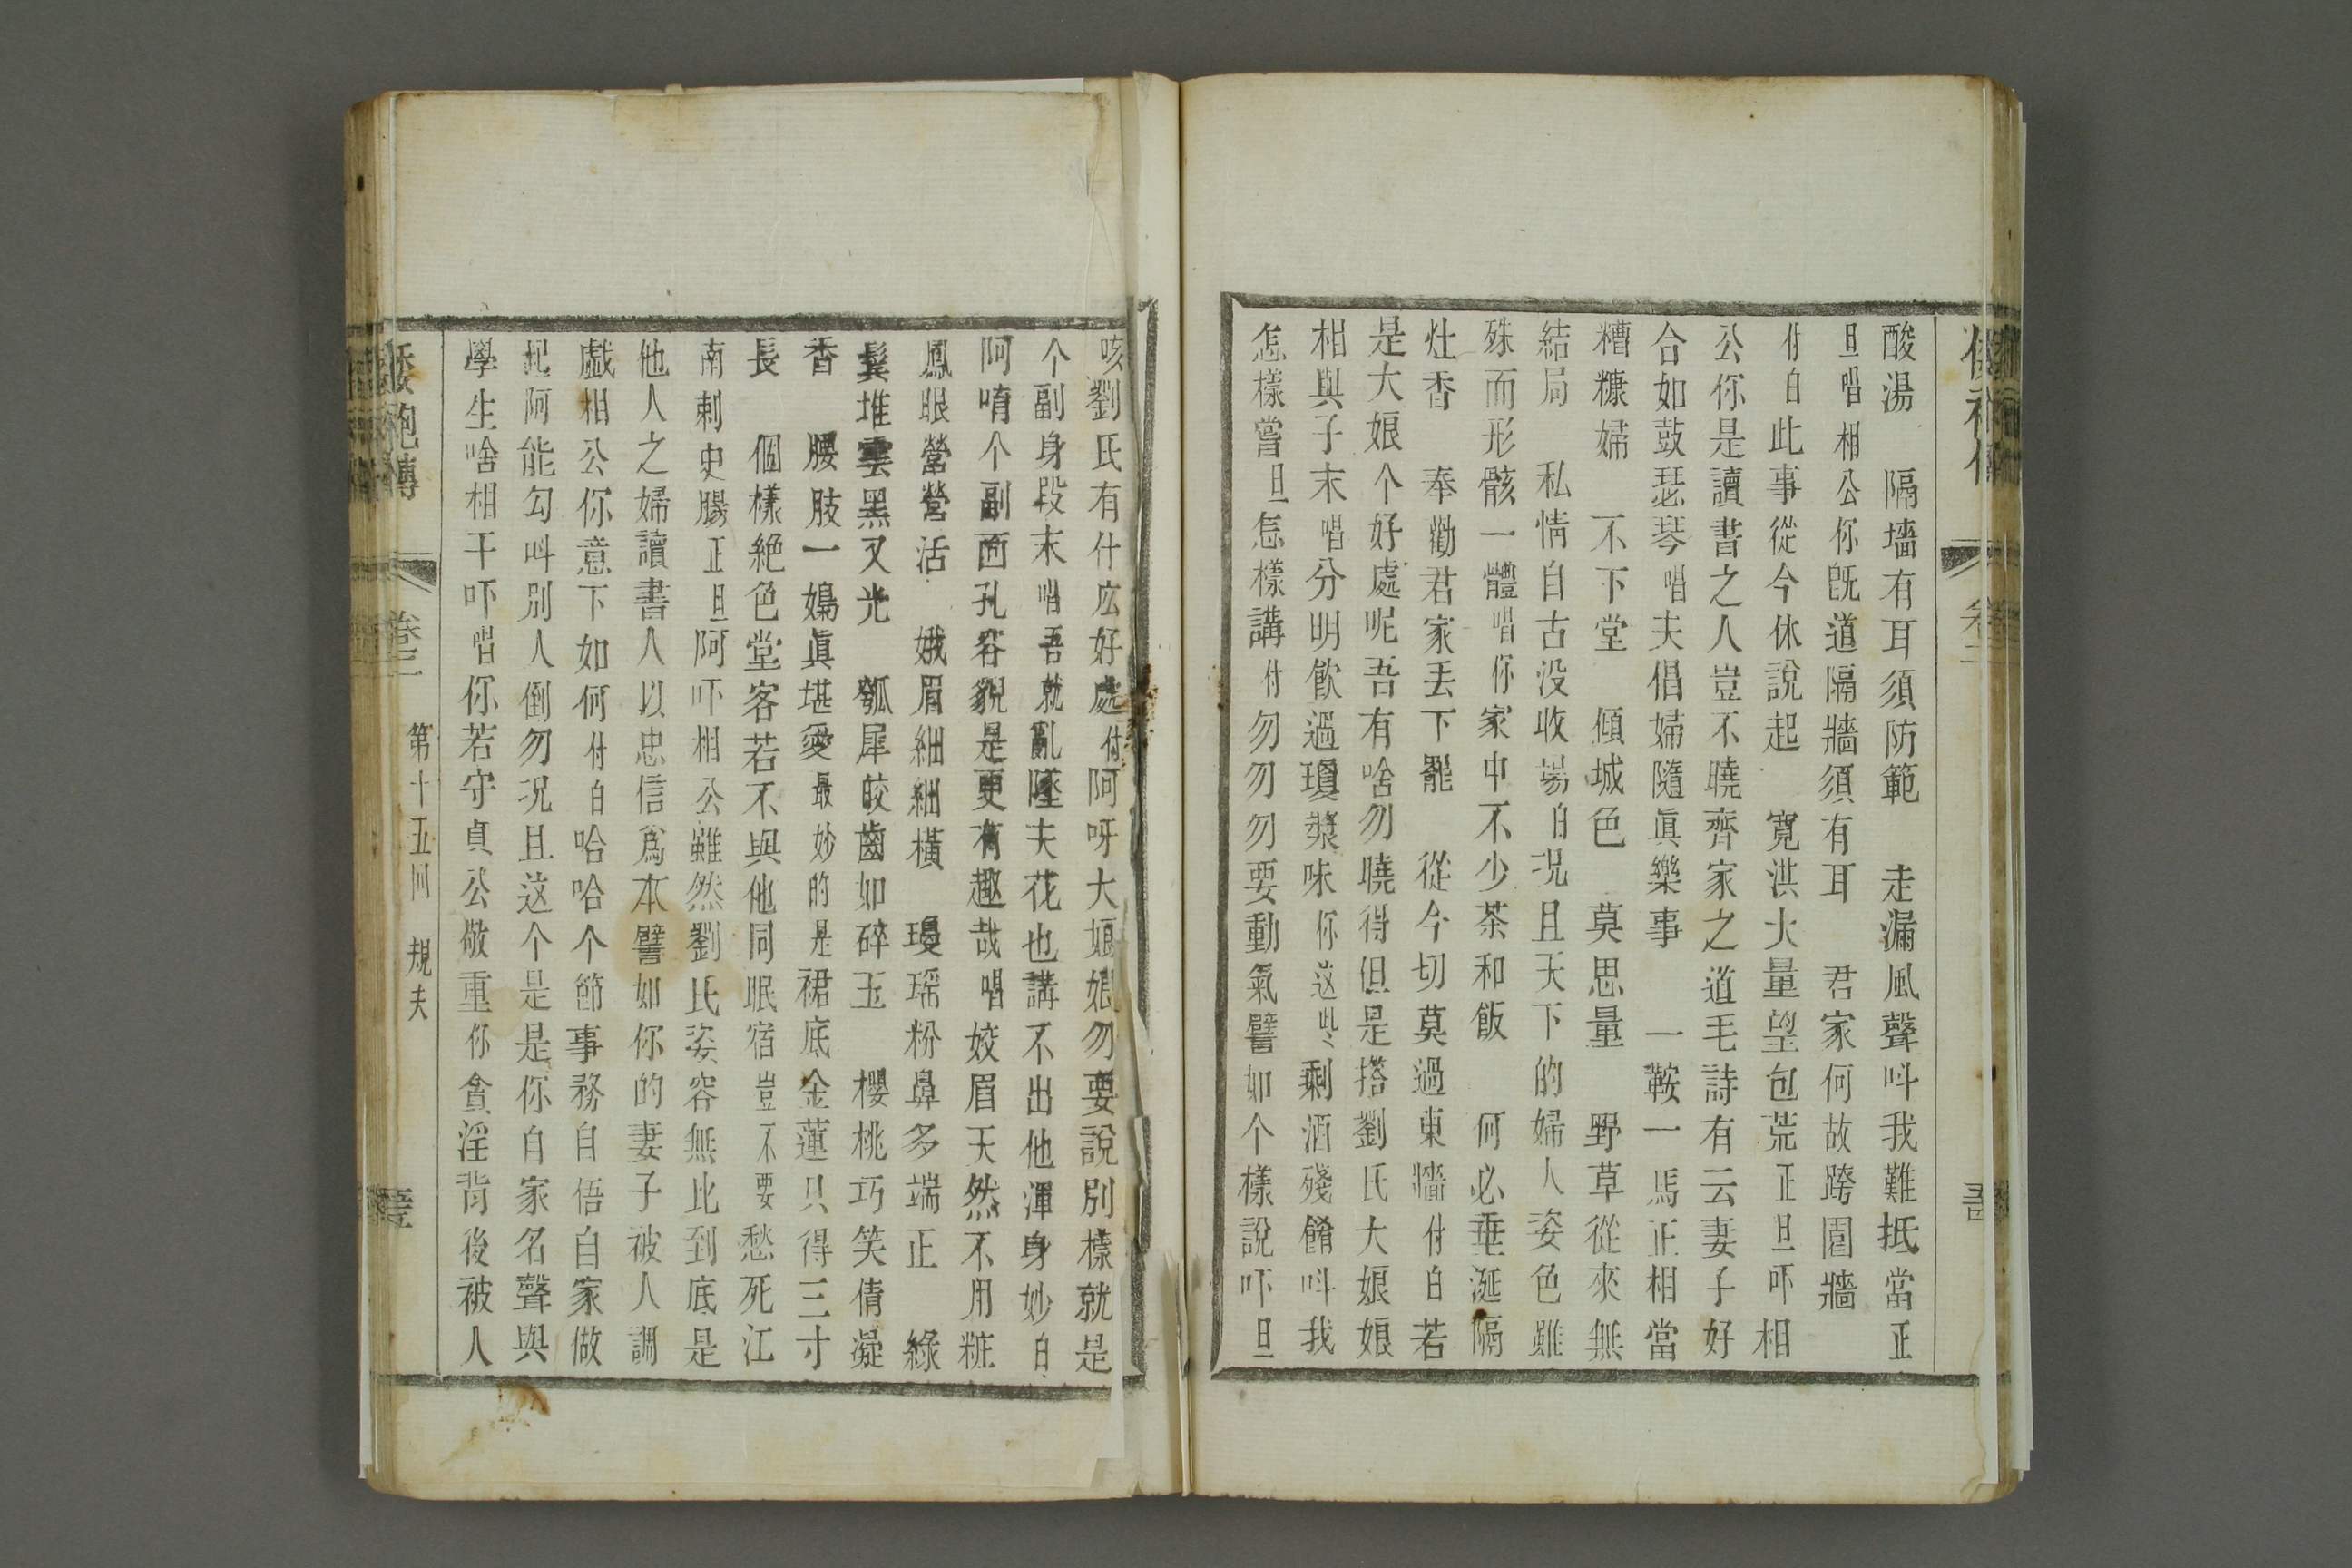 酸湯　隔墻有耳須防範　走漏風聲呌我難抵當正
旦唱相公你旣道隔牆須有耳　君家何故跨圍牆
付白此事從今休說起　寛洪大量望包荒正旦吓相
公你是讀書之人豈不曉齊家之道毛詩有云妻子好
合如鼓瑟琴唱夫倡婦隨眞樂事　一鞍一馬正相當
糟糠婦　不下堂　傾城色　莫思量　野草從來無
結局　私情自古没收塲白况且天下的婦人姿色雖
殊而形骸一體唱你家中不少茶和飯　何必垂涎隔
灶香　奉勸君家丟下罷　從今切莫過東牆付白若
是大娘个好處呢吾有啥勿曉得但是搭劉氏大娘娘
相與子末唱分明飲過瓊漿味你這些剩酒殘餚呌我
怎樣嘗旦怎樣講付勿勿勿要動氣譬如个樣說吓旦
咳劉氏有什庅好處付阿呀大娘娘勿要說別樣就是
个副身段末唱吾就亂墜天花也講不出他渾身妙白
阿唷个副面孔容貌是更有趣哉唱姣眉天然不用粧
鳳眼營營活　娥眉細細橫　瓊瑶粉鼻多端正　綠
鬂堆雲黑又光　瓠犀皎齒如碎玉　櫻桃巧笑倩凝
香　腰肢一嬝眞堪愛最妙的是裙底金蓮只得三寸
長　個樣絕色堂客若不與他同眠宿豈不要愁死江
南刺史腸正旦阿吓相公雖然劉氏姿容無比到底是
他人之婦讀書人以忠信爲本譬如你的妻子被人調
戲相公你意下如何付白哈哈个節事務自悟自家做
起阿能勾呌別人倒勿况且这个是是你自家名聲與
學生啥相干吓唱你若守貞公敬重你貪淫背後被人
倭袍傳　卷二　第十五回　規夫